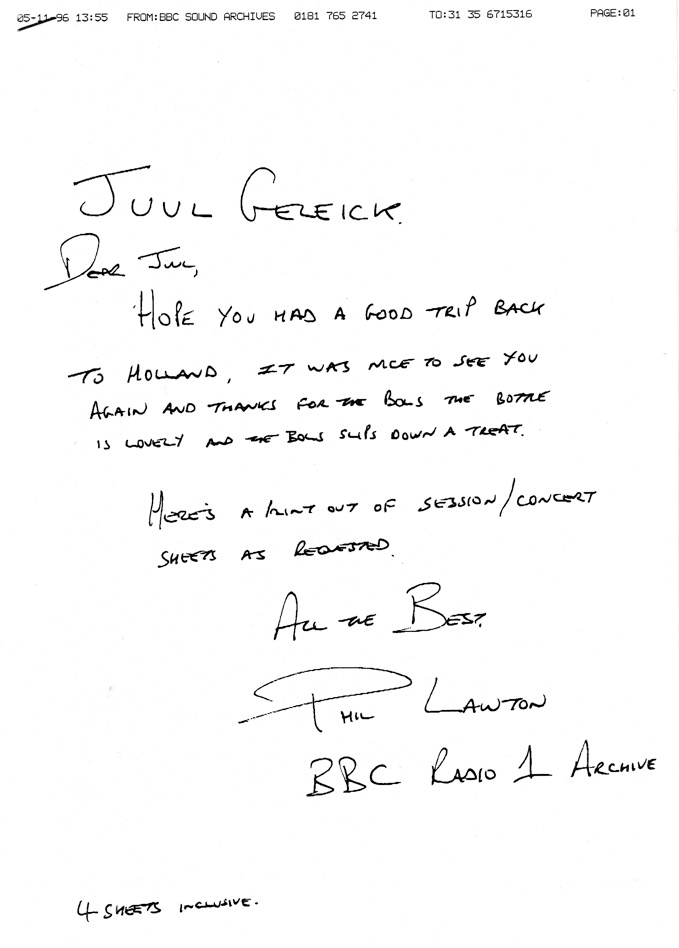 05-11-96 13:55 FROM:BBC SOUND ARCHIVES 0181 765 2741 TO:31 35 6715316 PAGE:01
JUUL GEZEICK.
DEAR JUUL,
HOPE YOU HAD A GOOD TRIP BACK
TO HOLLAND, IT WAS NICE TO SEE YOU
AGAIN AND THANKS FOR THE BOLS THE BOTTLE
IS LOVELY AND THE BOLS SLIPS DOWN A TREAT.
HERE'S A PRINT OUT OF SESSION/CONCERT
SHEETS AS REQUESTED.
ALL THE BEST.
PHIL LAWTON
BBC RADIO 1 ARCHIVE
4 SHEETS INCLUSIVE.